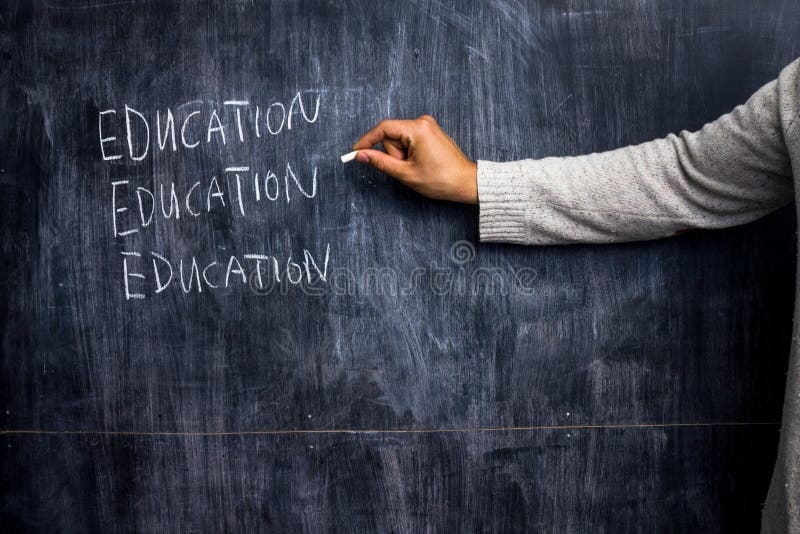 EDUCATION
EDUCATION
EDUCATION
dreamstime